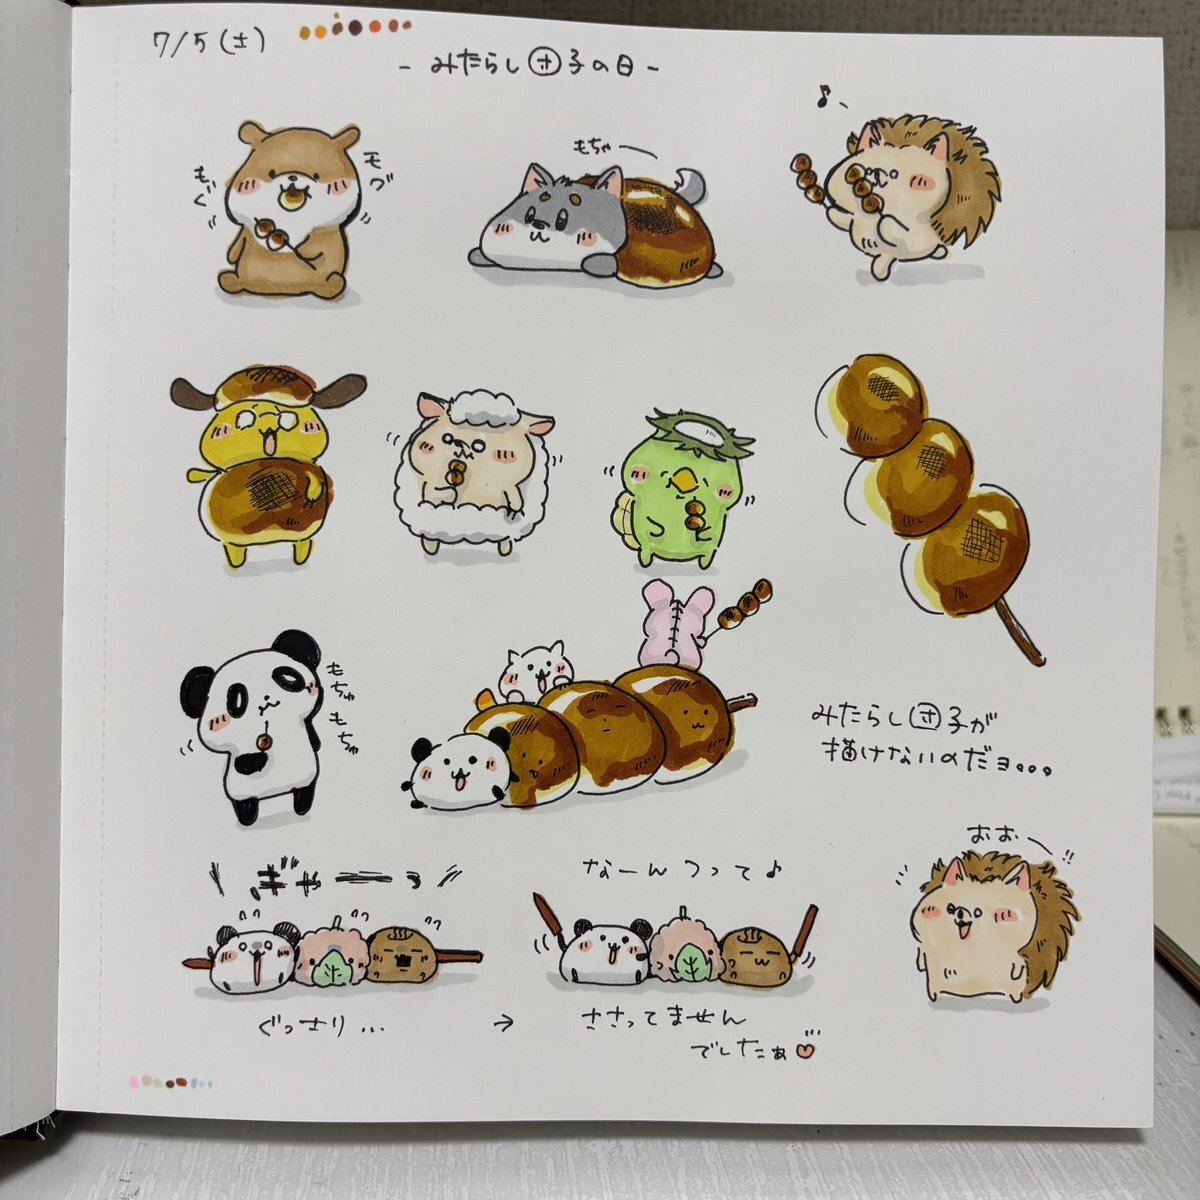 7/5(土)
- みたらし団子の日 -
もぐ
モグ
もちゃー
♪
もちゅ
もちゃ
みたらし団子が
描けないのだヨ。。。
おおー!!
\ ぎゃーっ /
なーんつって♪
ぐっさり… →
ささってません
でしたぁ♡